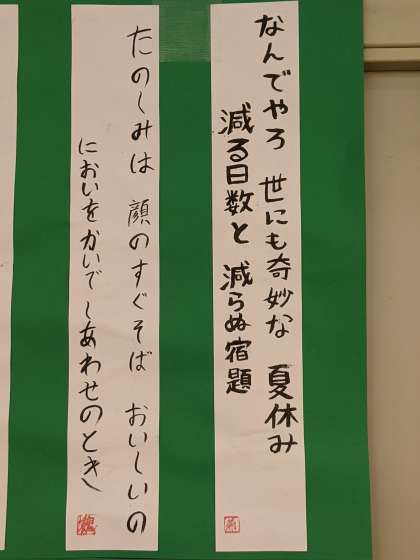 なんでやろ 世にも奇妙な 夏休み
減る日数と 減らぬ宿題
たのしみは 顔のすぐそば おいしいの
においをかいで しあわせのとき